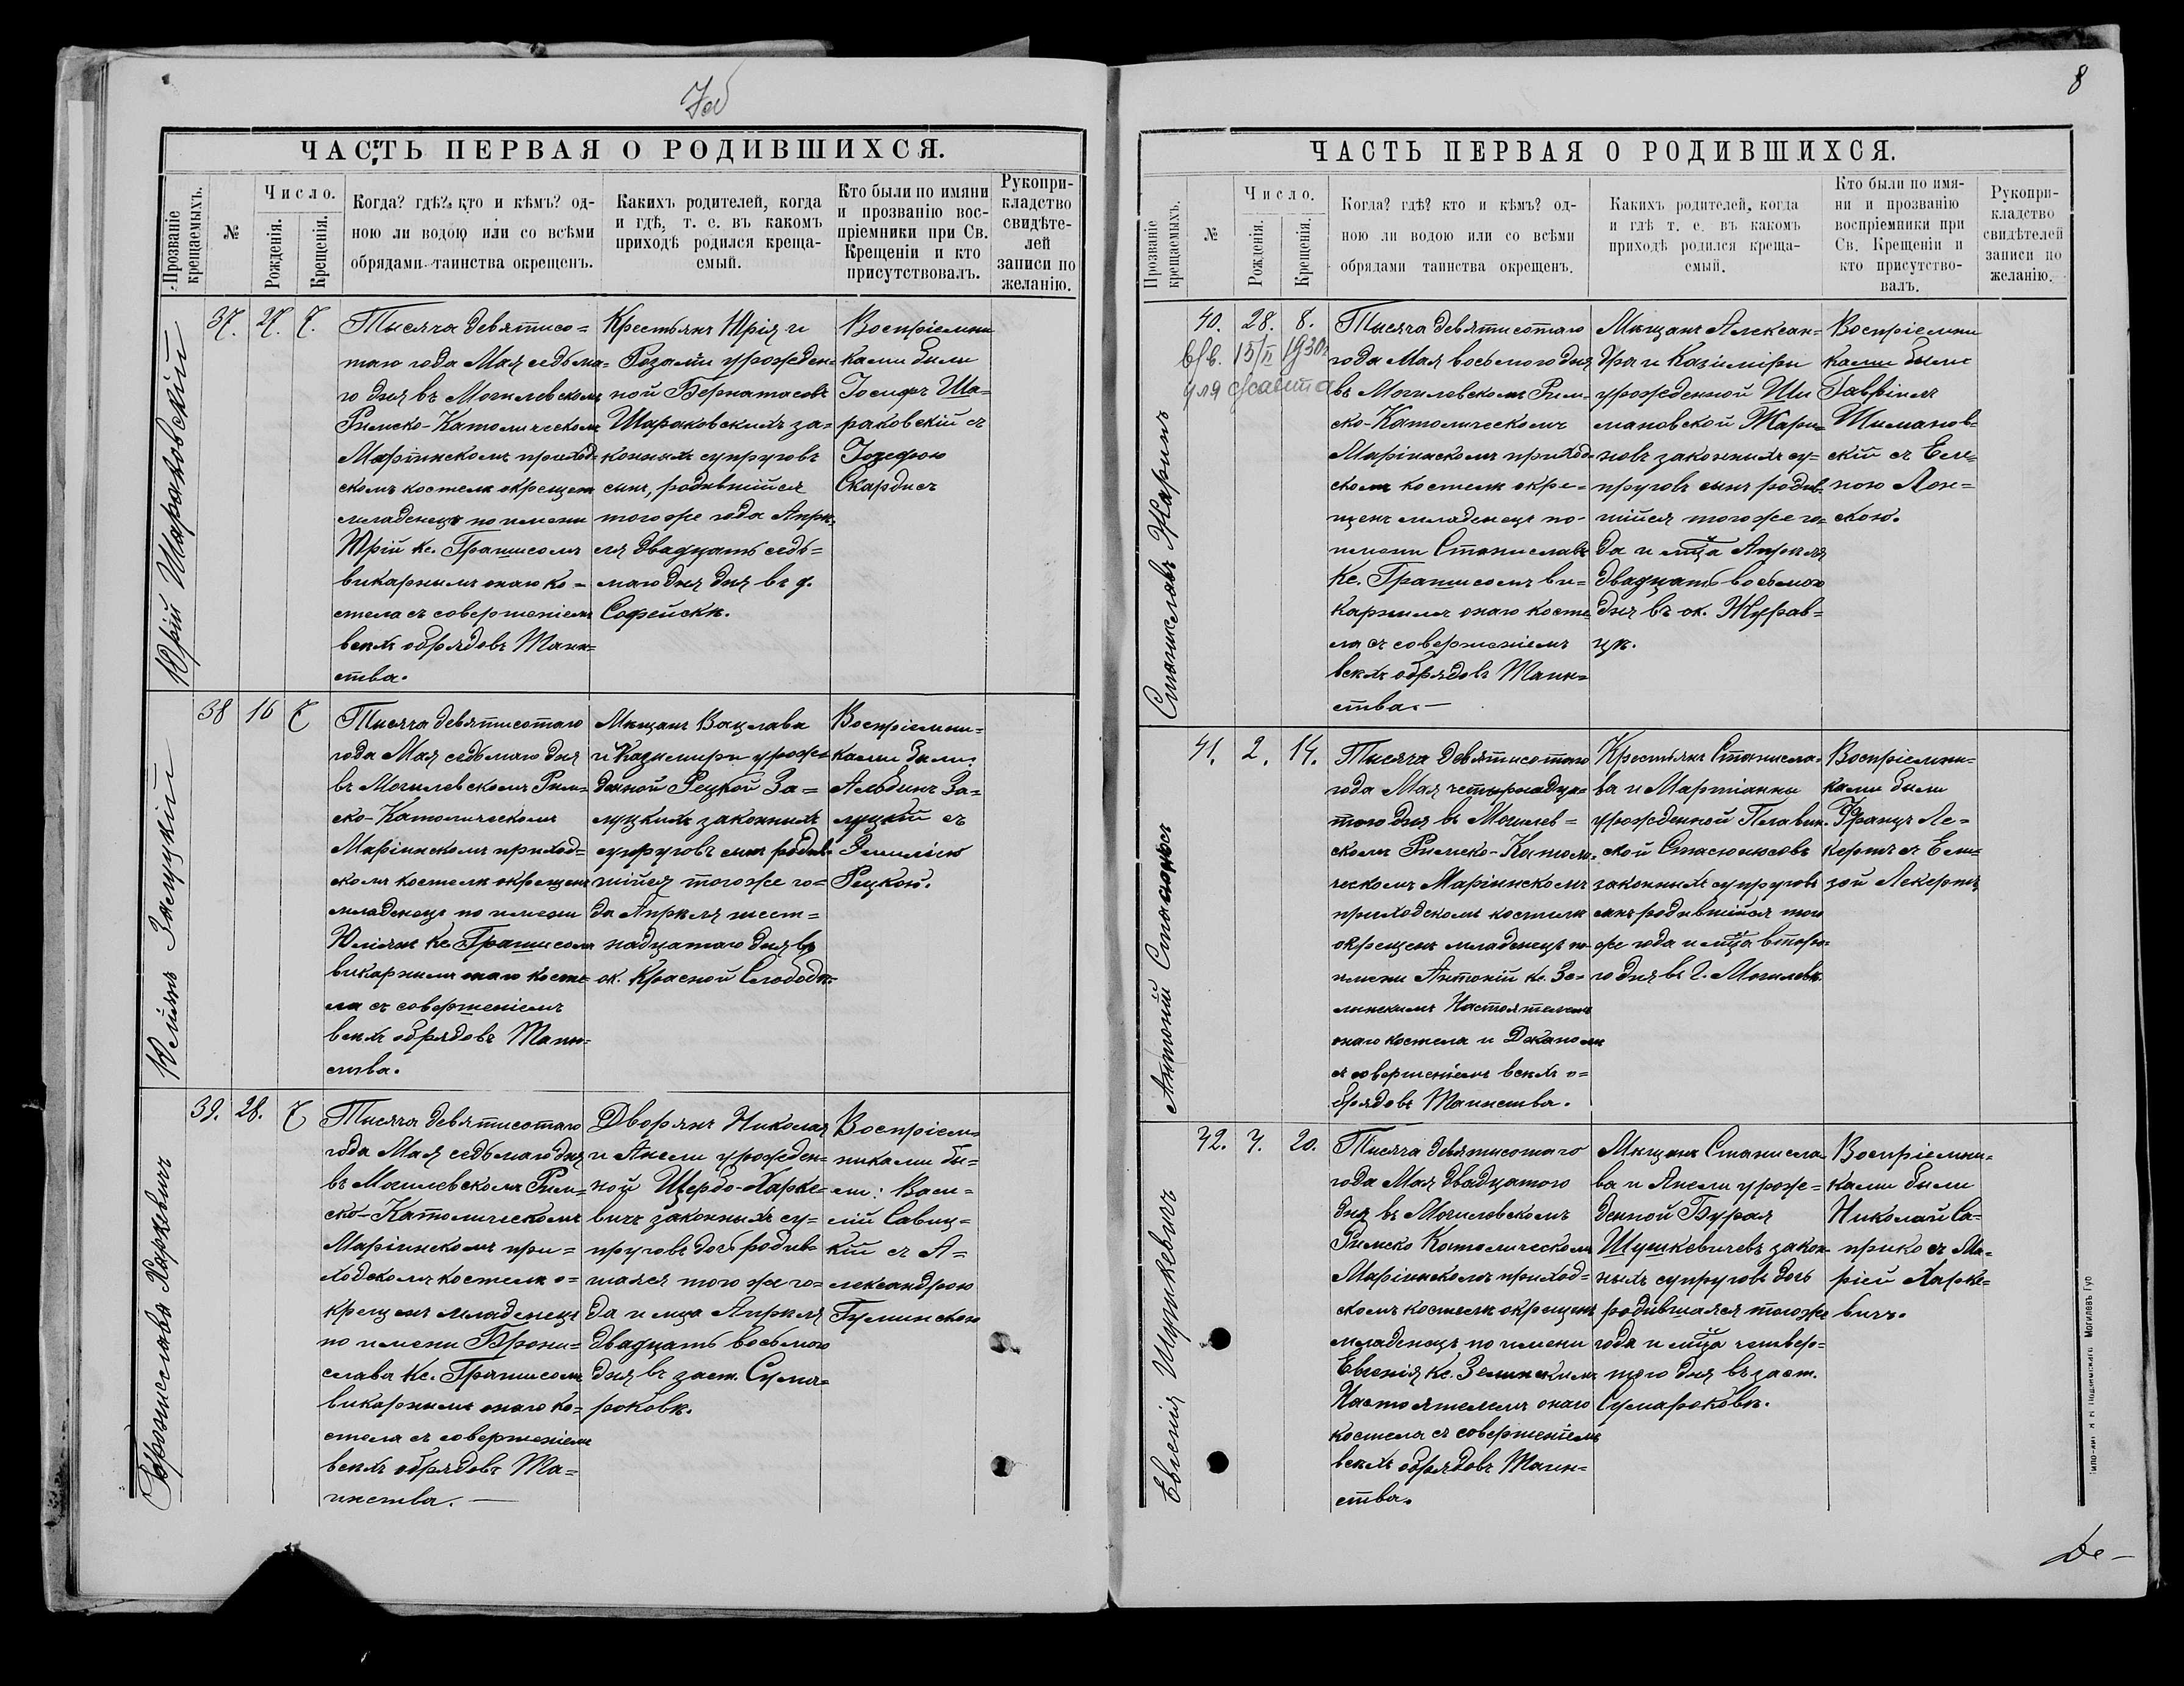 7об
ЧАСТЬ ПЕРВАЯ О РОДИВШИХСЯ.
Прозваніе крещаемыхъ.
№
Число.
Рожденія.
Крещенія.
Когда? гдѣ? кто и кѣмъ? од-
ною ли водою или со всѣми
обрядами таинства окрещенъ.
Какихъ родителей, когда
и гдѣ, т. е. въ какомъ
приходѣ родился креща-
емый.
Кто были по имяни
и прозванію вос-
пріемники при Св.
Крещеніи и кто
присутствовалъ.
Рукопри-
кладство
свидѣте-
лей
записи по
желанію.
Юрій Шараковскій
37. 27. 7.
Тысяча девятисо=
таго года Мая седьма=
го дня въ Могилевскомъ
Римско-Католическомъ
Маріинскомъ приход=
скомъ костелѣ окрещенъ
младенецъ по имени
Юрій Кс. Грашисомъ
викарнымъ онаго ко=
стела съ совершеніемъ
всѣхъ обрядовъ Таин=
ства.
Крестьянъ Юрія и
Розаліи урожден=
ной Бернатасовъ
Шараковскихъ за=
конныхъ супруговъ
сынъ, родившійся
того же года Апрѣ=
ля двадцать седь=
маго дня дня въ д.
Софейскѣ.
Воспріемни
ками были
Іосифъ Ша=
раковскій съ
Іозефою
Скардисъ
Юліянъ Залуцкій
38 16 7
Тысяча девятисотаго
года Мая седьмаго дня
въ Могилевскомъ Рим=
ско-Католическомъ
Маріинскомъ приход=
скомъ костелѣ окрещенъ
младенецъ по имени
Юліянъ Кс. Грашисомъ
викарнымъ онаго косте=
ла съ совершеніемъ
всѣхъ обрядовъ Таин=
ства.
Мѣщанъ Вацлава
и Казимиры урож=
денной Рецкой За=
луцкихъ законныхъ
супруговъ сынъ родив=
шійся того же го=
да Апрѣля шест=
надцатаго дня въ
ок. Красной Слободѣ.
Воспріемни=
ками были:
Альбинъ За=
луцкій съ
Эмиліею
Рецкою.
Брониславъ Харкевичъ
39. 28. 7
Тысяча девятисотаго
года Мая седьмаго дня
въ Могилевскомъ Рим=
ско-Католическомъ
Маріинскомъ при=
ходскомъ костелѣ о=
крещенъ младенецъ
по имени Брони=
слава Кс. Грашисомъ
викарнымъ онаго ко=
стела съ совершеніемъ
всѣхъ обрядовъ Та=
инства. —
Дворянъ Николая
и Анели урожден=
ной Щербо-Харке=
вичъ законныхъ су=
пруговъ дочь родив=
шаяся того же го=
да и мца Апрѣля
двадцать восьмого
дня въ заст. Сума=
роковѣ.
Воспріем=
никами бы=
ли: Васи=
лій Савиц=
кій съ А=
лександрою
Гуминскою
8
ЧАСТЬ ПЕРВАЯ О РОДИВШИХСЯ.
Прозваніе крещаемыхъ.
№
Число.
Рожденія.
Крещенія.
Когда? гдѣ? кто и кѣмъ? од-
ною ли водою или со всѣми
обрядами таинства окрещенъ.
Какихъ родителей, когда
и гдѣ т. е. въ какомъ
приходѣ родился креща-
емый.
Кто были по имя-
ни и прозванію
воспріемники при
Св. Крещеніи и
кто присутство-
валъ.
Рукопри-
кладство
свидѣтелей
записи по
желанію.
Станиславъ Жаринъ
40. 28. 8.
15/II 1930г
для
Тысяча девятисотаго
года Мая восьмого дня
въ Могилевскомъ Рим=
ско-Католическомъ
Маріинскомъ приход=
скомъ костелѣ окре=
щенъ младенецъ по-
имени Станиславъ
Кс. Грашисомъ ви=
карнымъ онаго косте
ла съ совершеніемъ
всѣхъ обрядовъ Таин=
ства. —
Мѣщанъ Алексан=
дра и Казиміры
урожденной Ши
мановской Жари=
новъ законныхъ су=
пруговъ сынъ родив=
шійся того же го=
да и мца Апрѣля
двадцать восьмого
дня въ ок. Журав=
цѣ.
Воспріемни
ками были
Гавріилъ
Шиманов=
скій съ Еле=
ною Лон=
скою.
Антоній
41. 2. 14.
Тысяча девятисотаго
года Мая четырнадца=
таго дня въ Могилев=
скомъ Римско-Католи=
ческомъ Маріинскомъ
приходскомъ костелѣ
окрещенъ младенецъ по
имени Антоній Кс. Зе=
линскимъ Настоятелемъ
онаго костела и Деканомъ
съ совершеніемъ всѣхъ о=
брядовъ Таинства.
Крестьянъ Станисла=
ва и Маріанны
урожденной Плавин=
ской Стасюнасовъ
законныхъ супруговъ
сынъ родившійся того
же года и мца второ=
го дня въ г. Могилевѣ.
Воспріемни=
ками были
Францъ Ле=
кертъ съ Ели=
зой Лекертъ
Евгенія Шушкевичъ
42. 4. 20.
Тысяча девятисотаго
года Мая двадцатого
дня въ Могилевскомъ
Римско Католическомъ
Маріинскомъ приход=
скомъ костелѣ окрещенъ
младенецъ по имени
Евгенія Кс. Зелинскимъ
Настоятелемъ онаго
костела съ совершеніемъ
всѣхъ обрядовъ Таин=
ства.
Мѣщанъ Станисла
ва и Анели урож=
денной Бурая
Шушкевичевъ закон=
ныхъ супруговъ дочь
родившаяся того же
года и мца четвер=
того дня въ заст.
Сумароковѣ.
Воспріемни=
ками были
Николай Са=
прико съ Ма=
ріей Харке=
вичъ.
Могилевъ Губ
De —